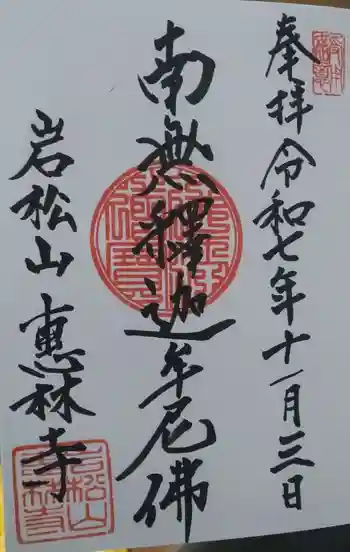 奉拝 令和七年十一月三日
南無釋迦牟尼佛
岩松山 恵林寺
岩松山恵林寺